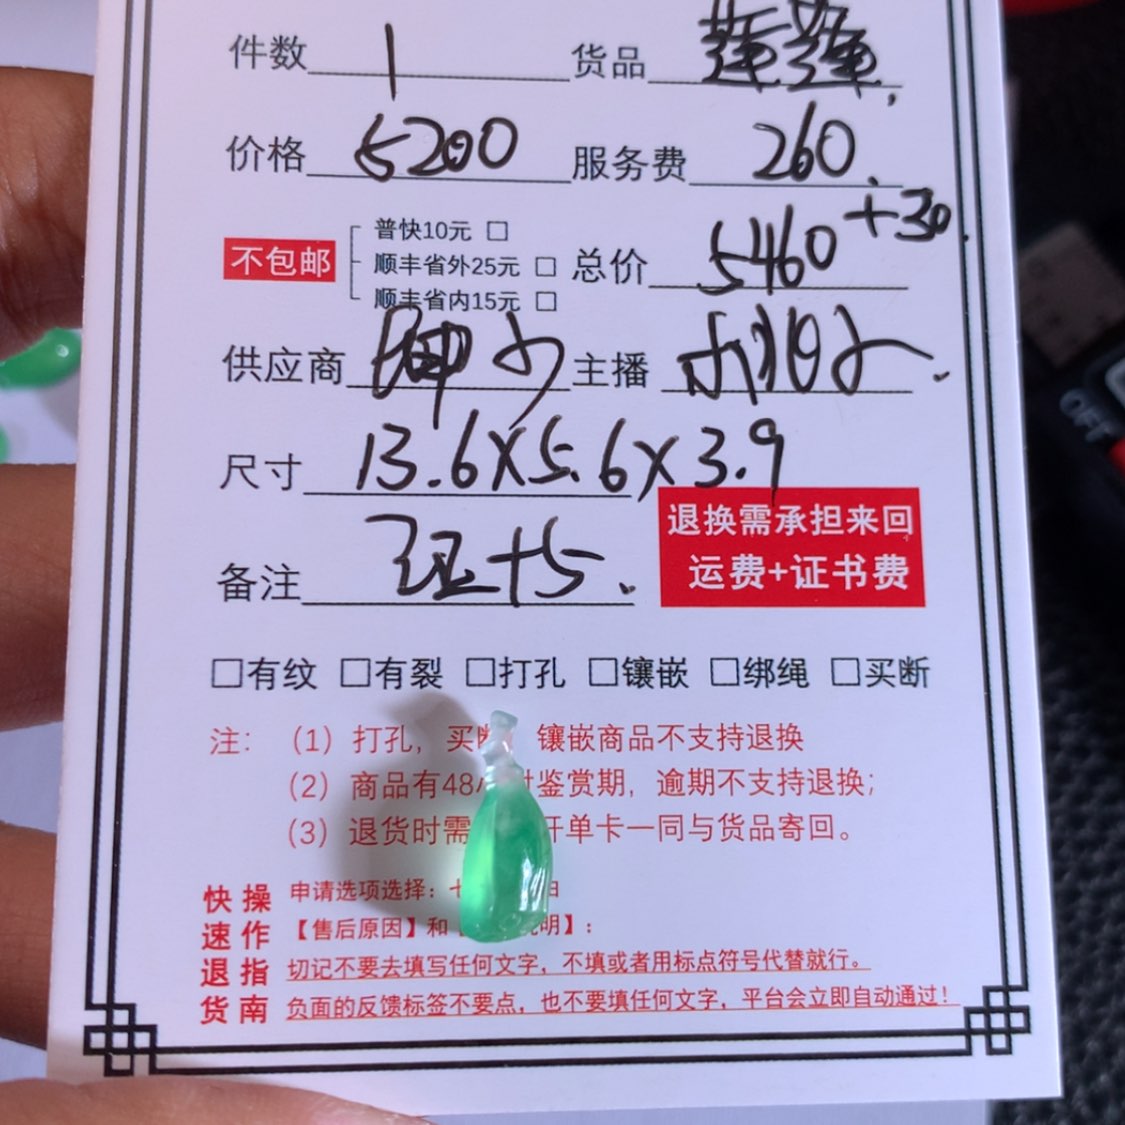 件数 1 货品
价格 5200 服务费 260.
不包邮 普快10元 □
顺丰省外25元 □ 总价 5460 +30.
顺丰省内15元 □
供应商 主播
尺寸 13.6X5.6X3.9
备注 证+5.
退换需承担来回
运费+证书费
□有纹 □有裂 □打孔 □镶嵌 □绑绳 □买断
注: (1) 打孔, 买断 镶嵌商品不支持退换
(2) 商品有48小时鉴赏期, 逾期不支持退换;
(3) 退货时需 开单卡一同与货品寄回。
快操 申请选项选择: 七
速作 【售后原因】和 明】:
退指 切记不要去填写任何文字, 不填或者用标点符号代替就行。
货南 负面的反馈标签不要点, 也不要填任何文字, 平台会立即自动通过!
OFF